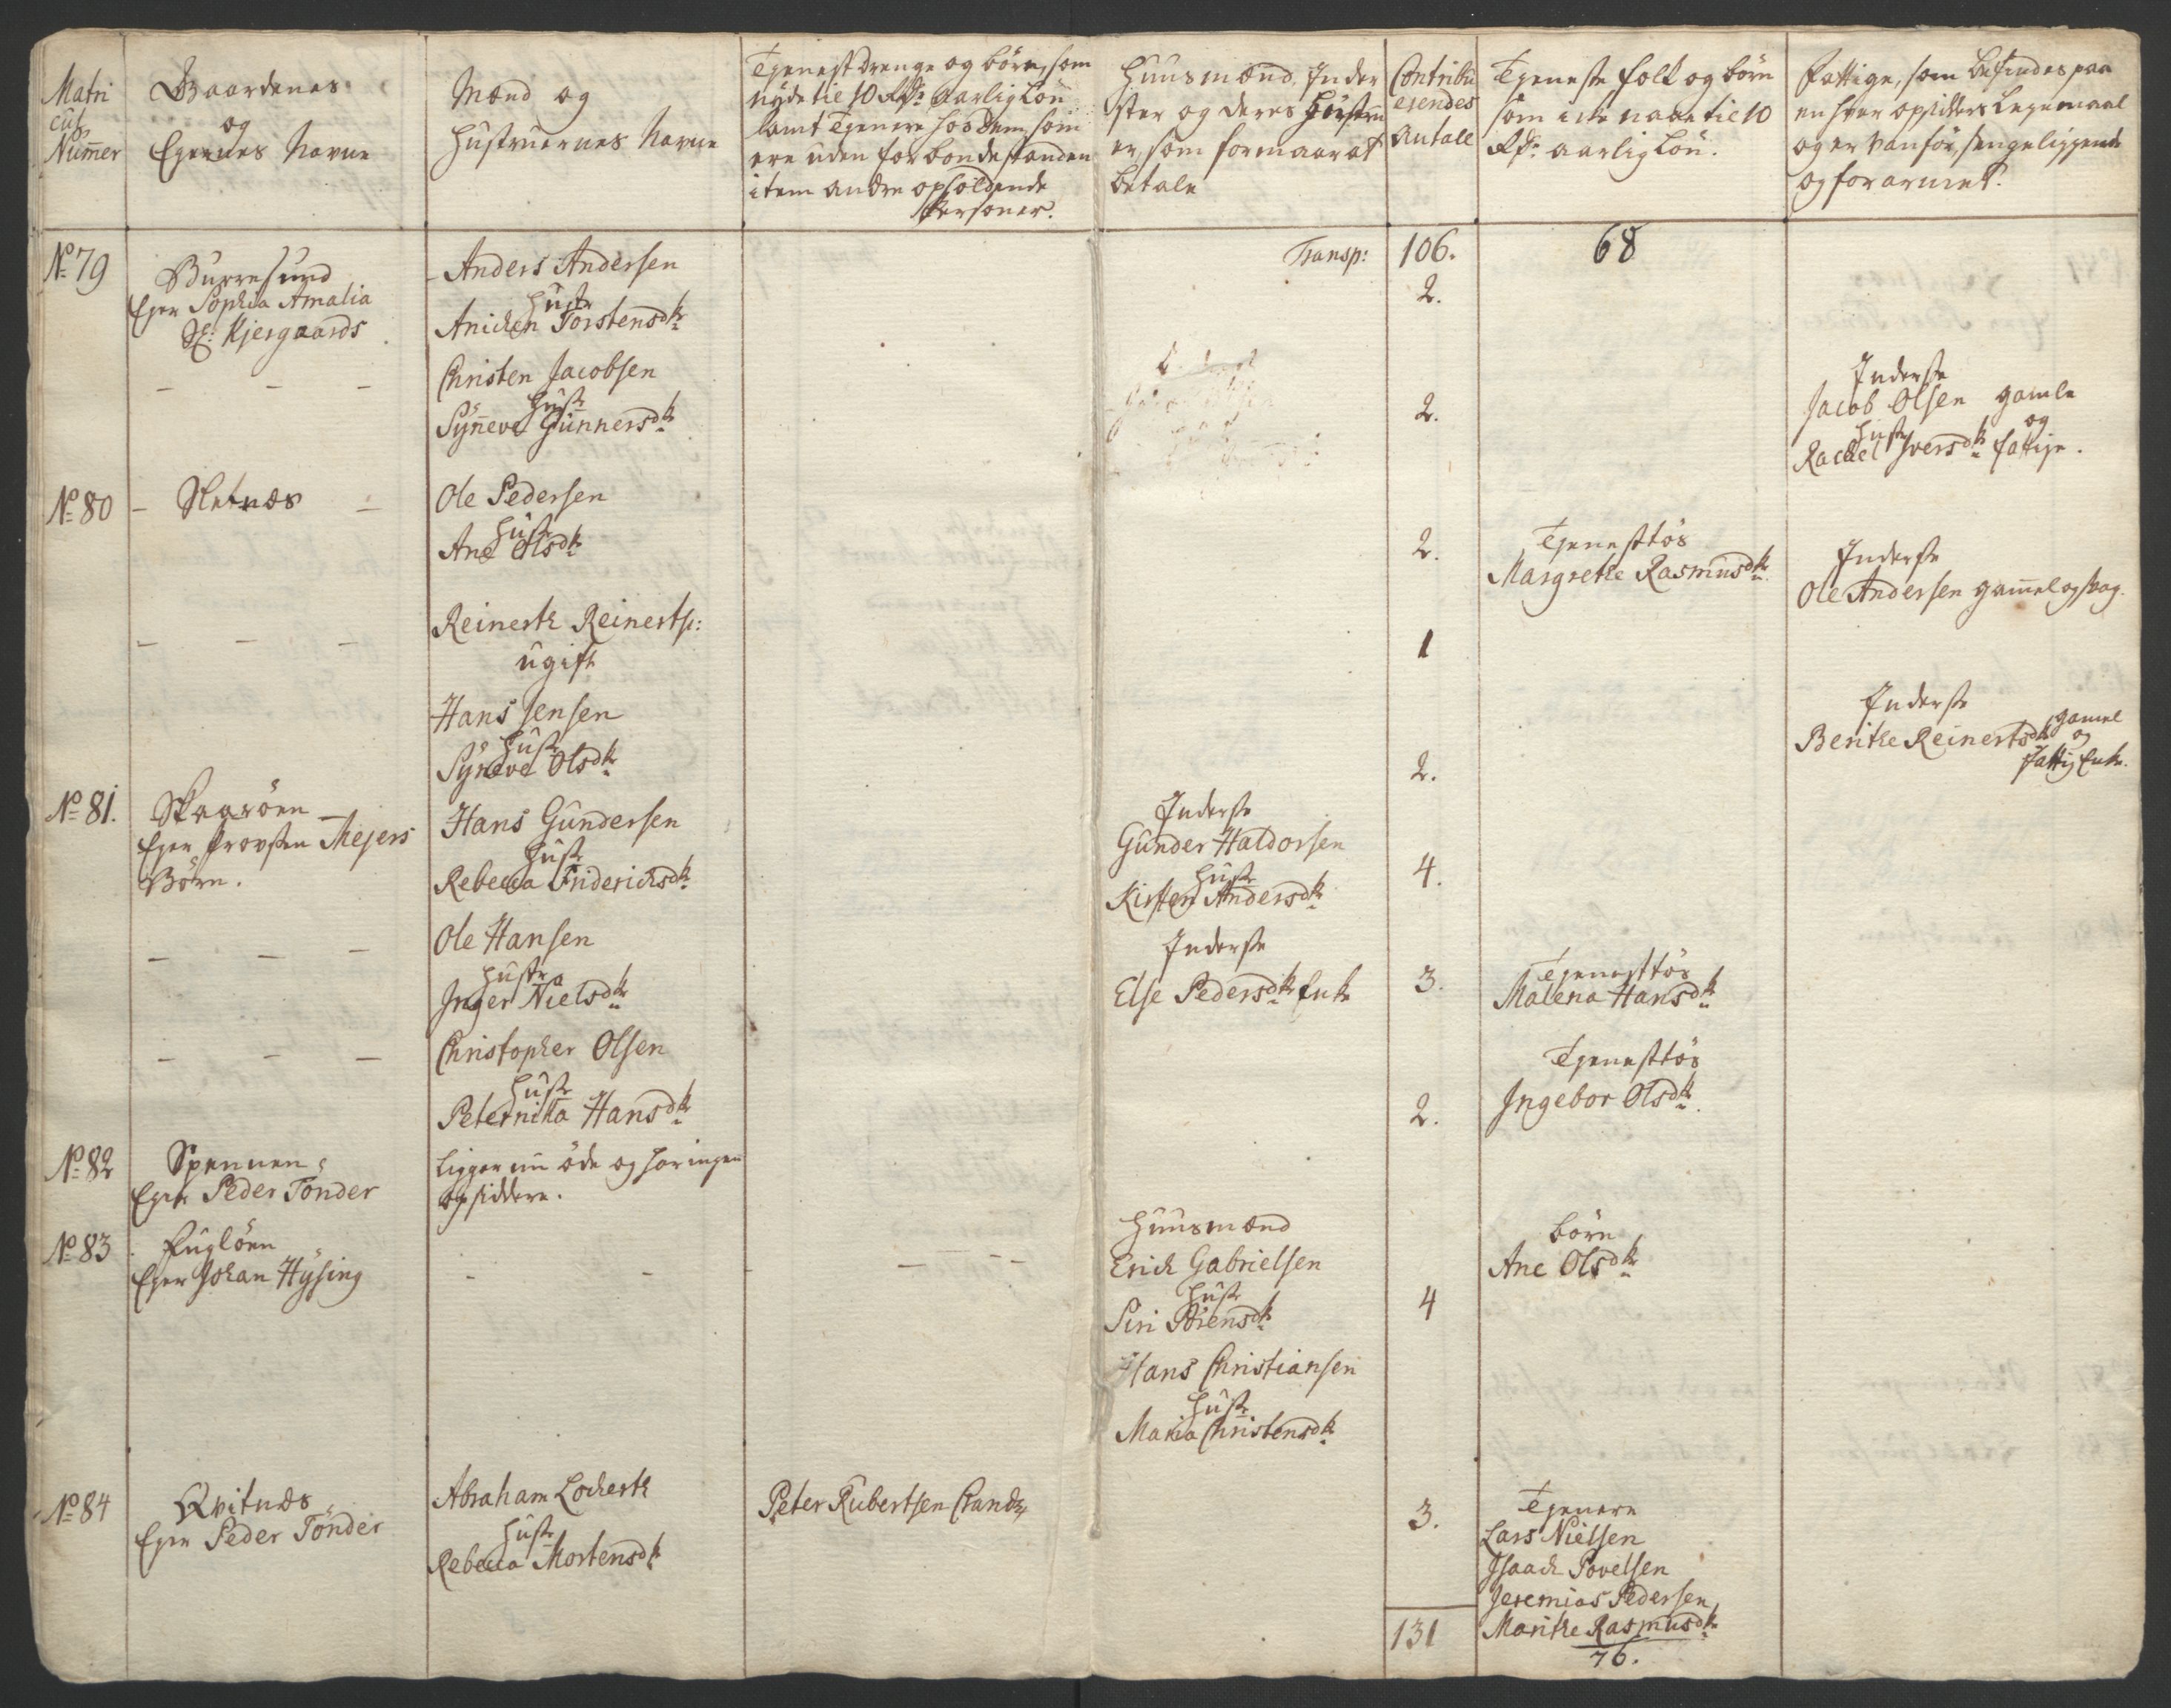 Matri
cul
Nummer
Gaardenes
og
Eyernes Navne
Mænd og
Hustruernes Navne
Tjenestdrenge og börn, som
nyde til 10 Rdr aarlig Lön
samt Tjenere hos dem, som
ere uden for bondestanden
item andre opholdende
Personer.
Huusmænd, Inder
ster og deres Hustru
er, som formaar at
betale
Contribu
erendes
Antall
Tjeneste folk og börn
som icke naae til 10
Rdr aarlig Lön.
Fattige, som befindes paa
enhver opsidders Leyemaal
og er vanför, sengeliggende
og forarmet.
No 79
Burresund
Eyer Sophia Amalia
Sl: Kjergaards
Anders Andersen
Hustr
Anichen Torstensdtr
Transp: 106. 68
2.
- - -
Christen Jacobsen
Hustr
Synneve Gunnersdtr
2.
Inderste
Jacob Olsen gamle
Hustr og
Rachel Iversdtr fattige.
No 80 - Sletnæs -
Ole Pedersen
Hustr
Ane Olsdtr
2.
Tjenesttös
Margrethe Rasmusdtr
Inderste
Ole Andersen gammel og svag.
- - -
Reinerth Reinerts:
ugift
1
Hans Jensen
Hustr
Syneve Olsdtr
2.
Inderste
Berithe Reinertsdtr gamel
og
fattig Enke.
No 81.
Skaaröen -
Eyer Provsten Mejers
Börn.
Hans Gundersen
Hustr
Rebecca Friderichsdtr
Inderste
Gunder Haldorsen
Hustr
Kirsten Andersdtr
4.
- - -
Ole Hansen
Hustr
Inger Nielsdtr
Inderste
Else Pedersdtr Enke
3.
Tjenesttös
Malena Hansdtr
- - -
Christopher Olsen
Hustr
Peternilla Hansdtr
2.
Tjenesttös
Ingebor Olsdtr
No 82
Spennen
Eyer Peder Tönder
Ligger nu öde og har ingen
opsiddere.
No 83
Fuglöen
Eyer Johan Hysing
- - - - - -
Huusmænd
Erich Gabrielsen
Hustr
Siri Sörensdtr
4
börn
Ane Olsdtr
Hans Christiansen
Hustr
Maria Christensdtr
No 84
Qvitnæs
Eyer Peder Tönder
Abraham Lockerth
Hustr
Rebecca Mortensdtr
Peter Rubertsen
3.
Tjenere
Lars Nielsen
Isaach Povelsen
Jeremias Pedersen
Marithe Rasmusdtr
131
76.